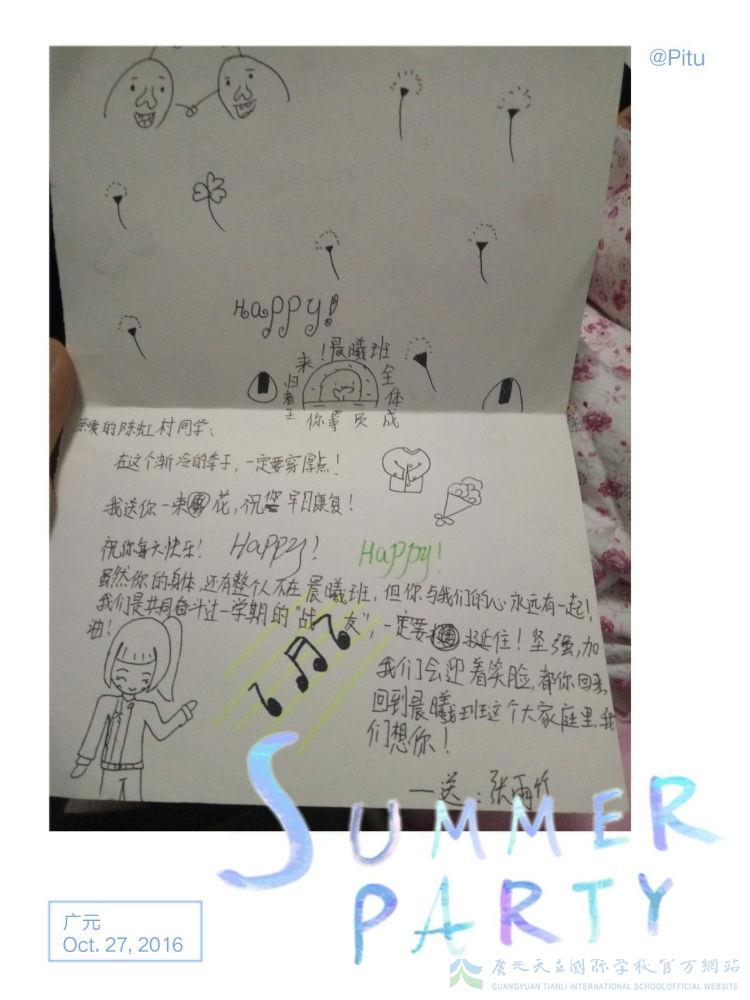 @Pitu
Happy!
来!晨曦班
归者王
全体成员等你
亲爱的陈虹村同学:
在这个渐冷的季子,一定要穿厚点!
我送你一束花,祝您早日康复!
祝你每天快乐! Happy! Happy!
虽然你的身体,还有整个人不在晨曦班,但你与我们的心永远有一起!
我们是共同奋斗过一学期的“战友”,一定要挺住!坚强,加
油!
我们会迎着笑脸,都你回来,
回到晨曦班这个大家庭里,我
们想你!
—送:张雨竹
SUMMER
PARTY
广元
Oct. 27, 2016
广元天立国际学校官方網站
GUANGYUAN TIANLI INTERNATIONAL SCHOOLOFFICIAL WEBSITE